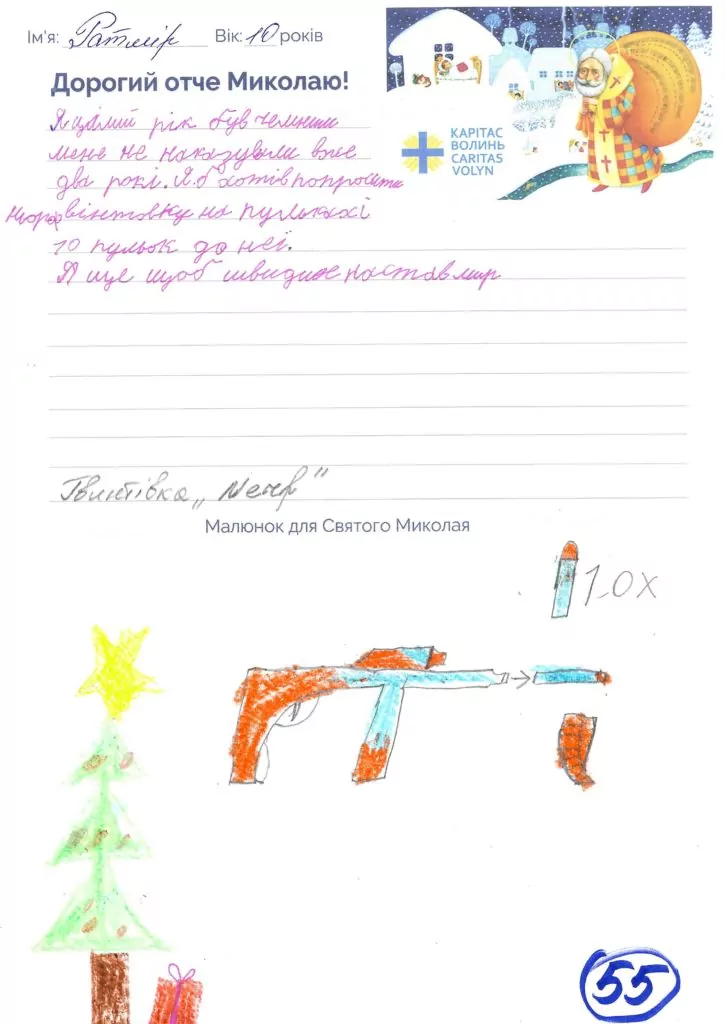 Ім'я: Ратмір Вік: 10 років
Дорогий отче Миколаю!
КАРІТАС
ВОЛИНЬ
CARITAS
VOLYN
Я цілий рік був чемним
мене не наказували вже
два рокі. Я б хотів попросити
вінтовку на пульках і
10 пульок до неї.
Я ще щоб швидше настав мир
Гвинтівка „Nerf"
Малюнок для Святого Миколая
10x
55